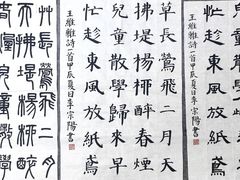 忙趁東風放紙鳶
詩一首甲辰夏日李宗陽書
草長鶯飛二月天
堤楊柳醉春
兒童散學歸來
忙趁東風放紙鳶
詩一首甲辰夏日李宗陽書
艸長鶯飛二月
堤楊柳醉